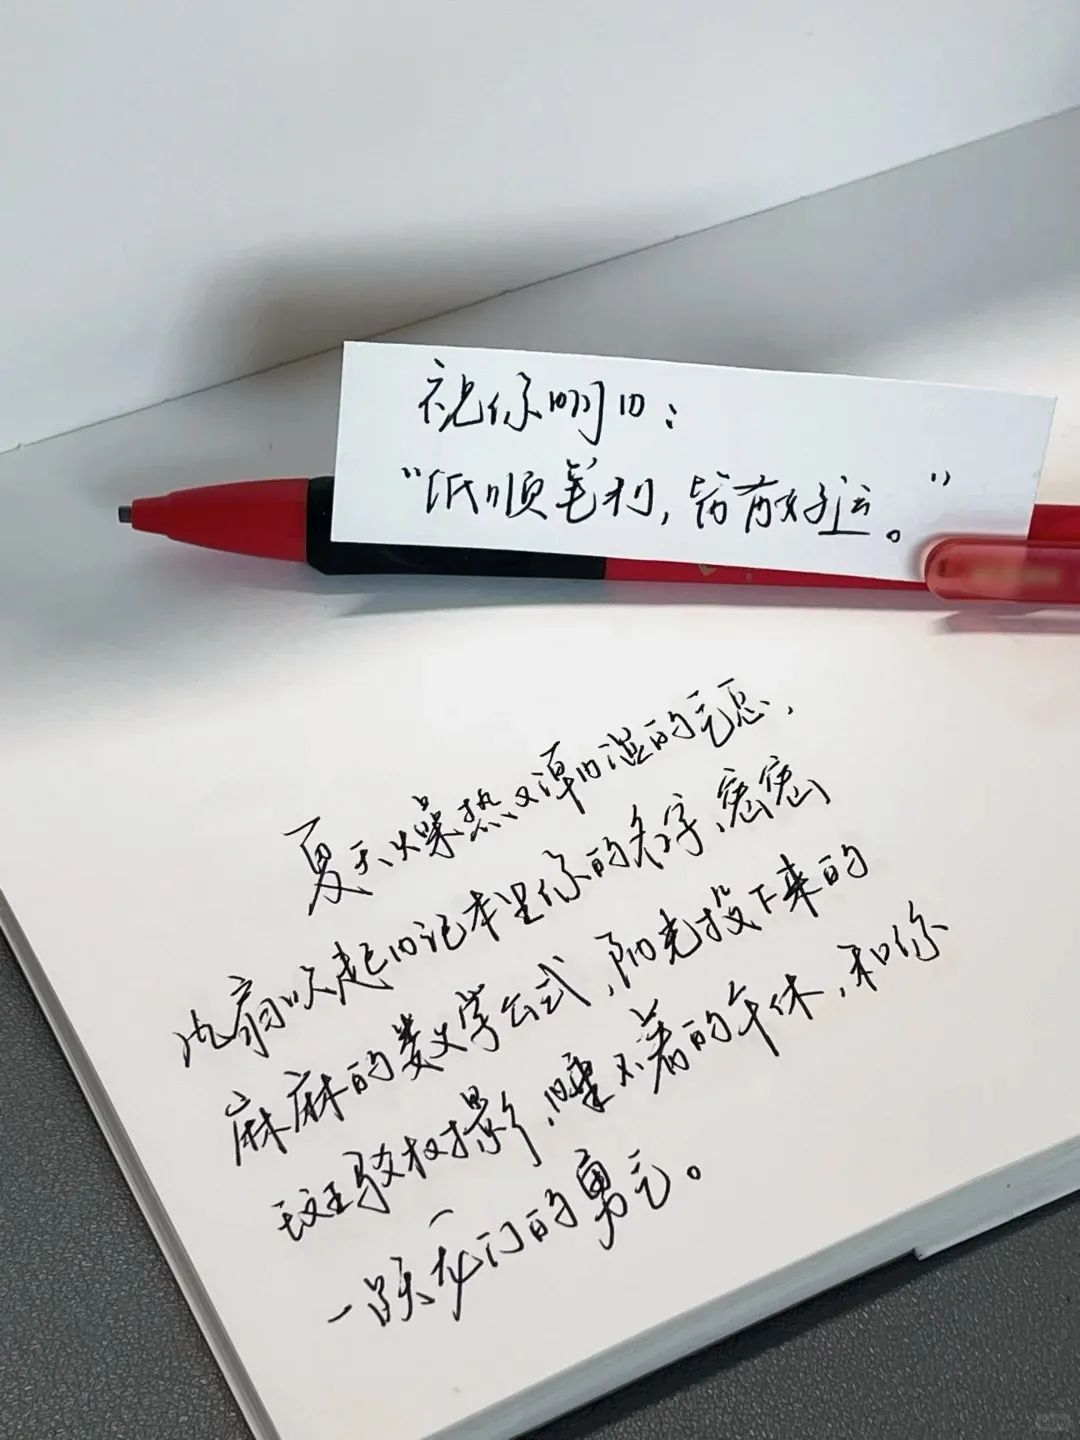 祝你明日：
“纸顺笔利，皆有好运。”
夏天燥热又潮湿的气息，
风扇吹起日记本里你的名字、密密
麻麻的数学公式，阳光投下来的
斑驳树影，睡不着的午休，和你
一跃龙门的勇气。